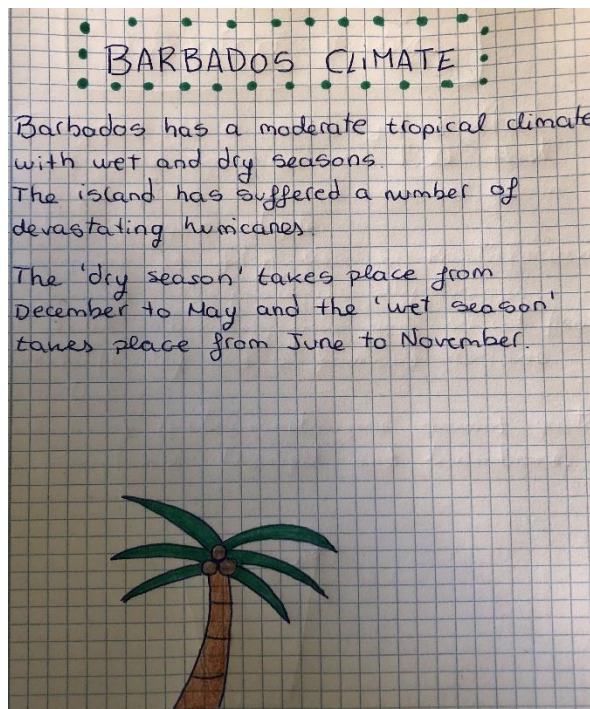 BARBADOS CLIMATE
Barbados has a moderate tropical climate
with wet and dry seasons.
The island has suffered a number of
devastating hurricanes.
The 'dry season' takes place from
December to May and the 'wet season'
takes place from June to November.